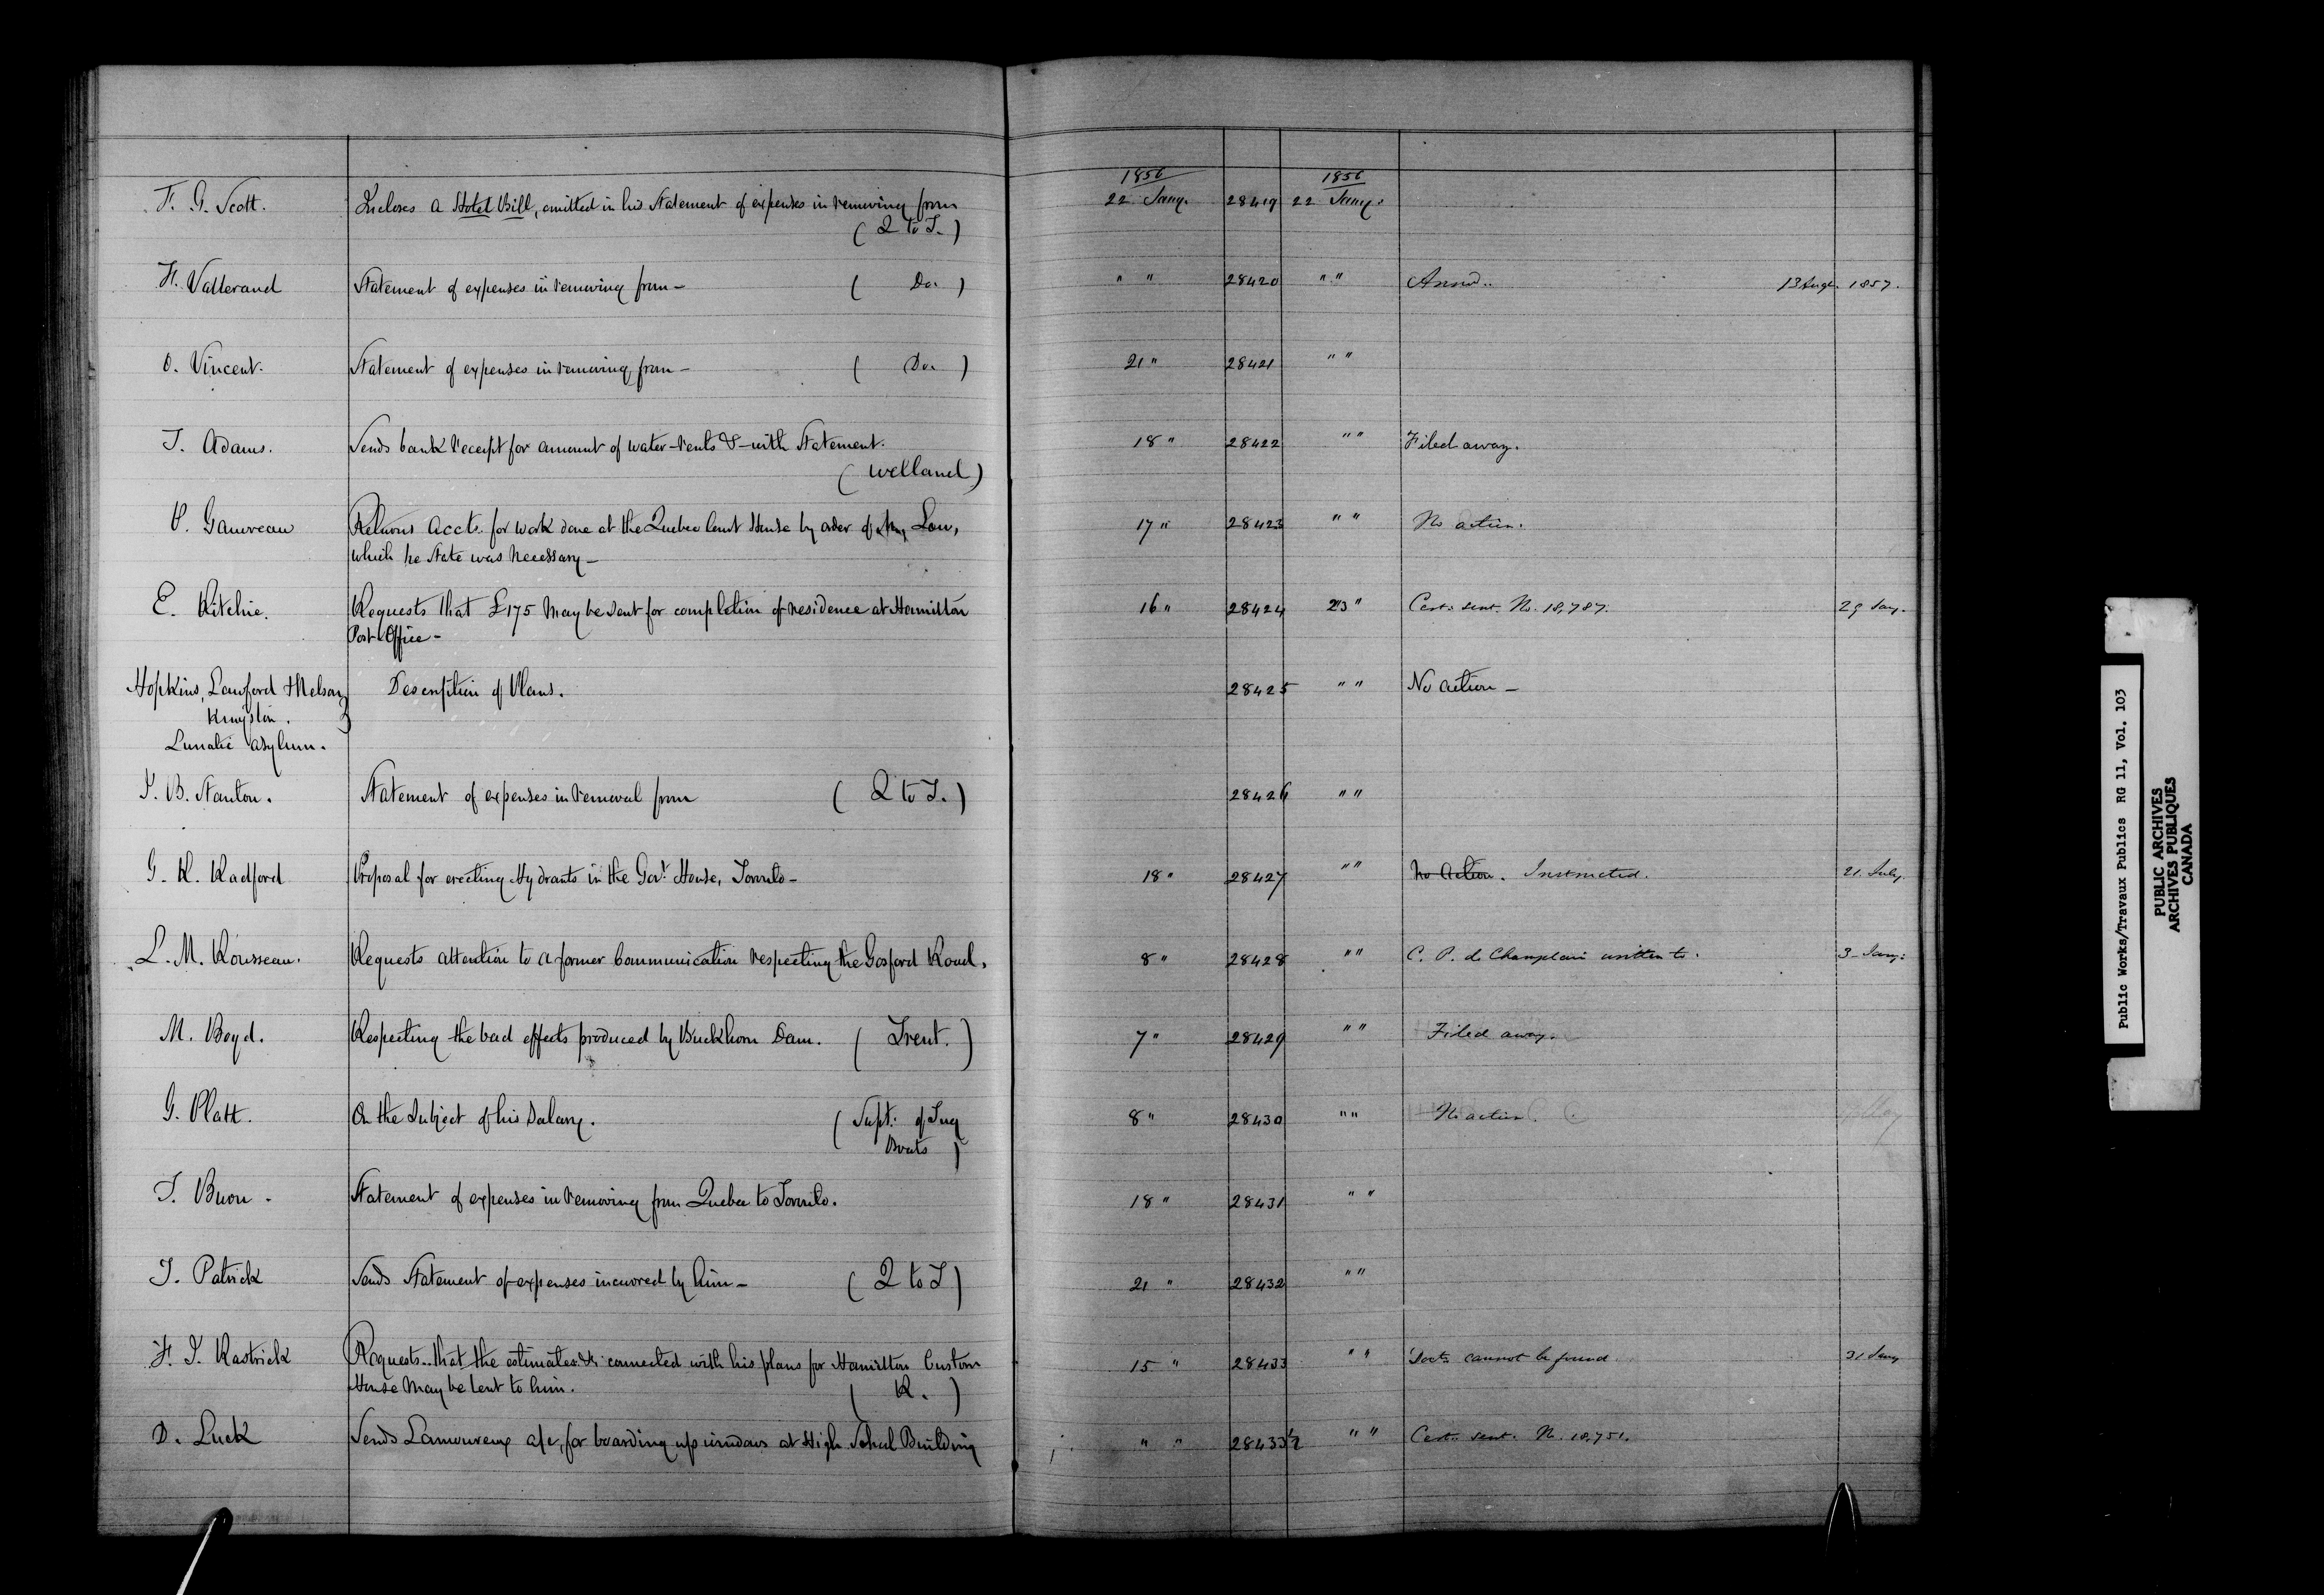 1856 1856
F. G. Scott. Incloses a Hotel Bill, omitted in his Statement of expenses in removing from 22 Jany. 28419 22 Jany.
( Q to T. )
H. Vallerand Statement of expenses in removing from — ( Do. ) " " 28420 " " Answd.. 13 Augt. 1857.
O. Vincent. Statement of expenses in removing from — ( Do. ) 21 " 28421 " "
J. Adams. Sends bank receipt for amount of water-rents &-with Statement. 18 " 28422 " " Filed away.
( Welland )
P. Gauvreau Returns Accts. for work done at the Quebec Court House by order of Law, 17 " 28423 " " No action.
which he State was necessary —
E. Ritchie. Requests that £175 may be sent for completion of residence at Hamilton 16 " 28424 23 " Cert. sent. No. 18,787. 29 Jany.
Post Office —
Hopkins, Lawford & Nelson Description of Plans. 28425 " " No action —
Kingston.
Lunatic Asylum.
J. B. Stanton. Statement of expenses in removal from ( Q to T. ) 28426 " "
G. K. Radford Proposal for erecting Hydrants in the Govt. House, Toronto — 18 " 28427 " " No Action. Instructed. 21. July.
L. M. Rousseau. Requests attention to a former Communication respecting the Gosford Road. 8 " 28428 " " C. P. de Champlain written to. 3 Jany.
M. Boyd. Respecting the bad effects produced by Buckhorn Dam. ( Trent. ) 7 " 28429 " " Filed away.
G. Platt. On the Subject of his Salary. ( Supt. of Tug 8 " 28430 " " No action.
Boats )
T. Buon. Statement of expenses in removing from Quebec to Toronto. 18 " 28431 " "
J. Patrick Sends Statement of expenses incurred by him — ( Q to T ) 21 " 28432 " "
F. J. Rastrick Requests that the estimates & connected with his plans for Hamilton Custom 15 " 28433 " " Docts. cannot be found 31 Jany
House may be lent to him. ( R. )
D. Luck Sends Lamoureux a/c, for boarding up windows at High School Building " " 28433½ " " Cert. sent. No. 18,751.
Public Works/Travaux Publics RG 11, Vol. 103
PUBLIC ARCHIVES
ARCHIVES PUBLIQUES
CANADA